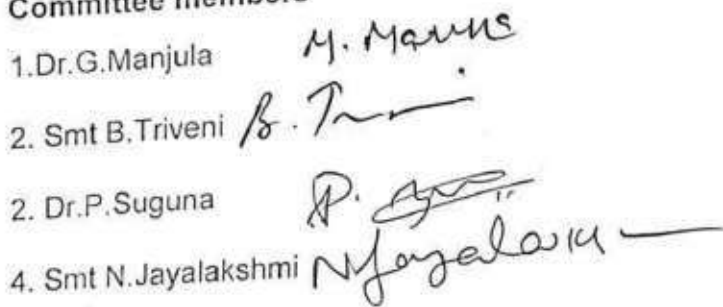 Committee members
1.Dr.G.Manjula M. Manjula
2. Smt B.Triveni B. Tr
2. Dr.P.Suguna P.
4. Smt N.Jayalakshmi N Jayalaxm